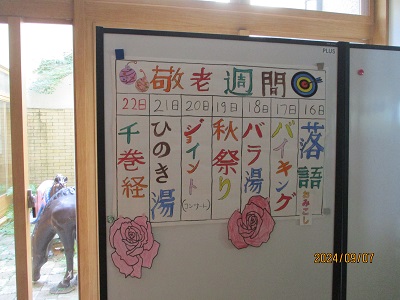 PLUS
敬老週間
16日
落語
おみこし
17日
バイキング
18日
バラ湯
19日
秋祭り
20日
ジョイント
(コンサート)
21日
ひのき湯
22日
千巻経
2024/09/07